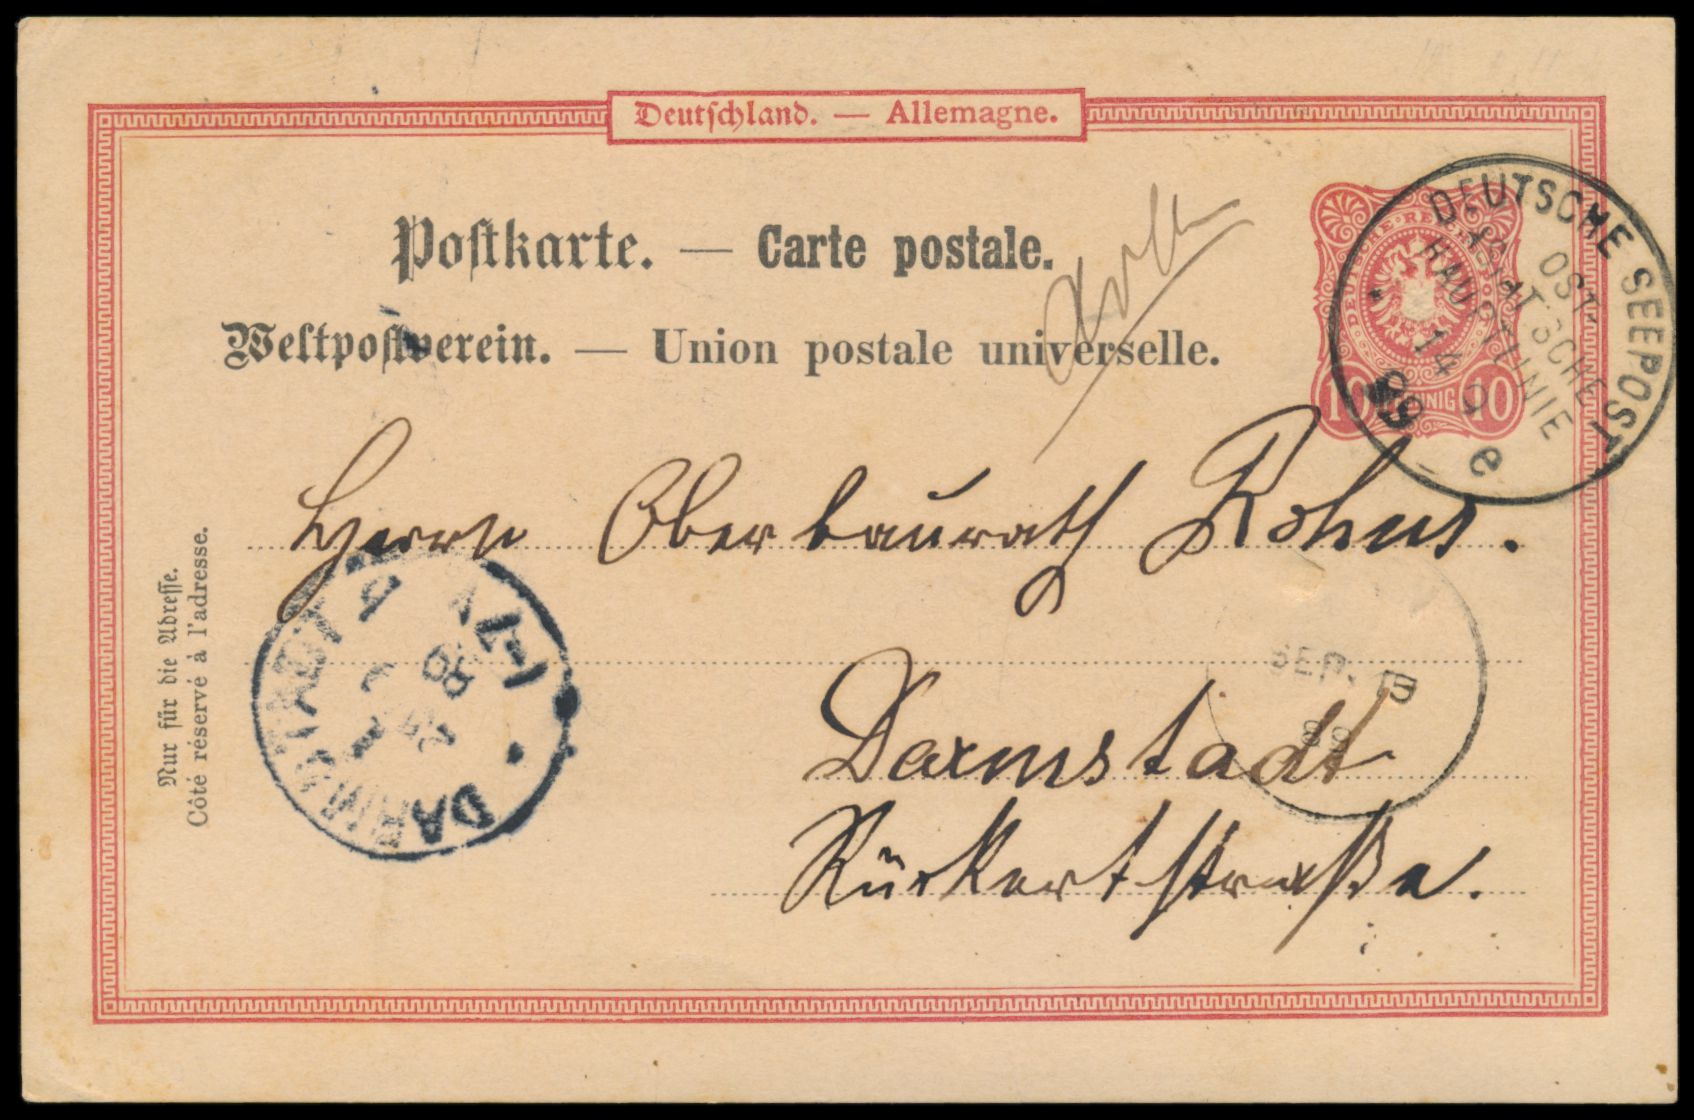 Deutschland. — Allemagne.
Postkarte. — Carte postale.
Weltpostverein. — Union postale universelle.
DEUTSCHE REICHSPOST
10 PFENNIG 10
DEUTSCHE SEEPOST
OST-
ASIATISCHE
HAUPTLINIE
14 9
89
e
Herrn Oberbaurath Rohns.
Darmstadt
Rückertstraße.
Nur für die Adresse.
Côté réservé à l'adresse.
DARMSTADT
SEP. 15
89